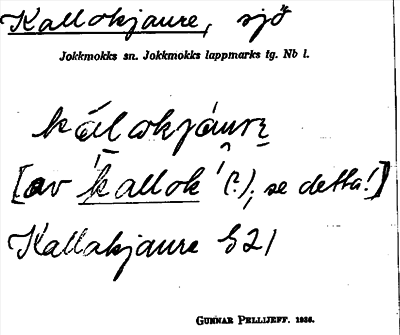 Kallokjaure, sjö
Jokkmokks sn. Jokkmokks lappmarks tg. Nb l.
kálokjáurε
[av 'kallok' (?), se detta!]
Kallakjaure S21
GUNNAR PELLIJEFF. 1936.